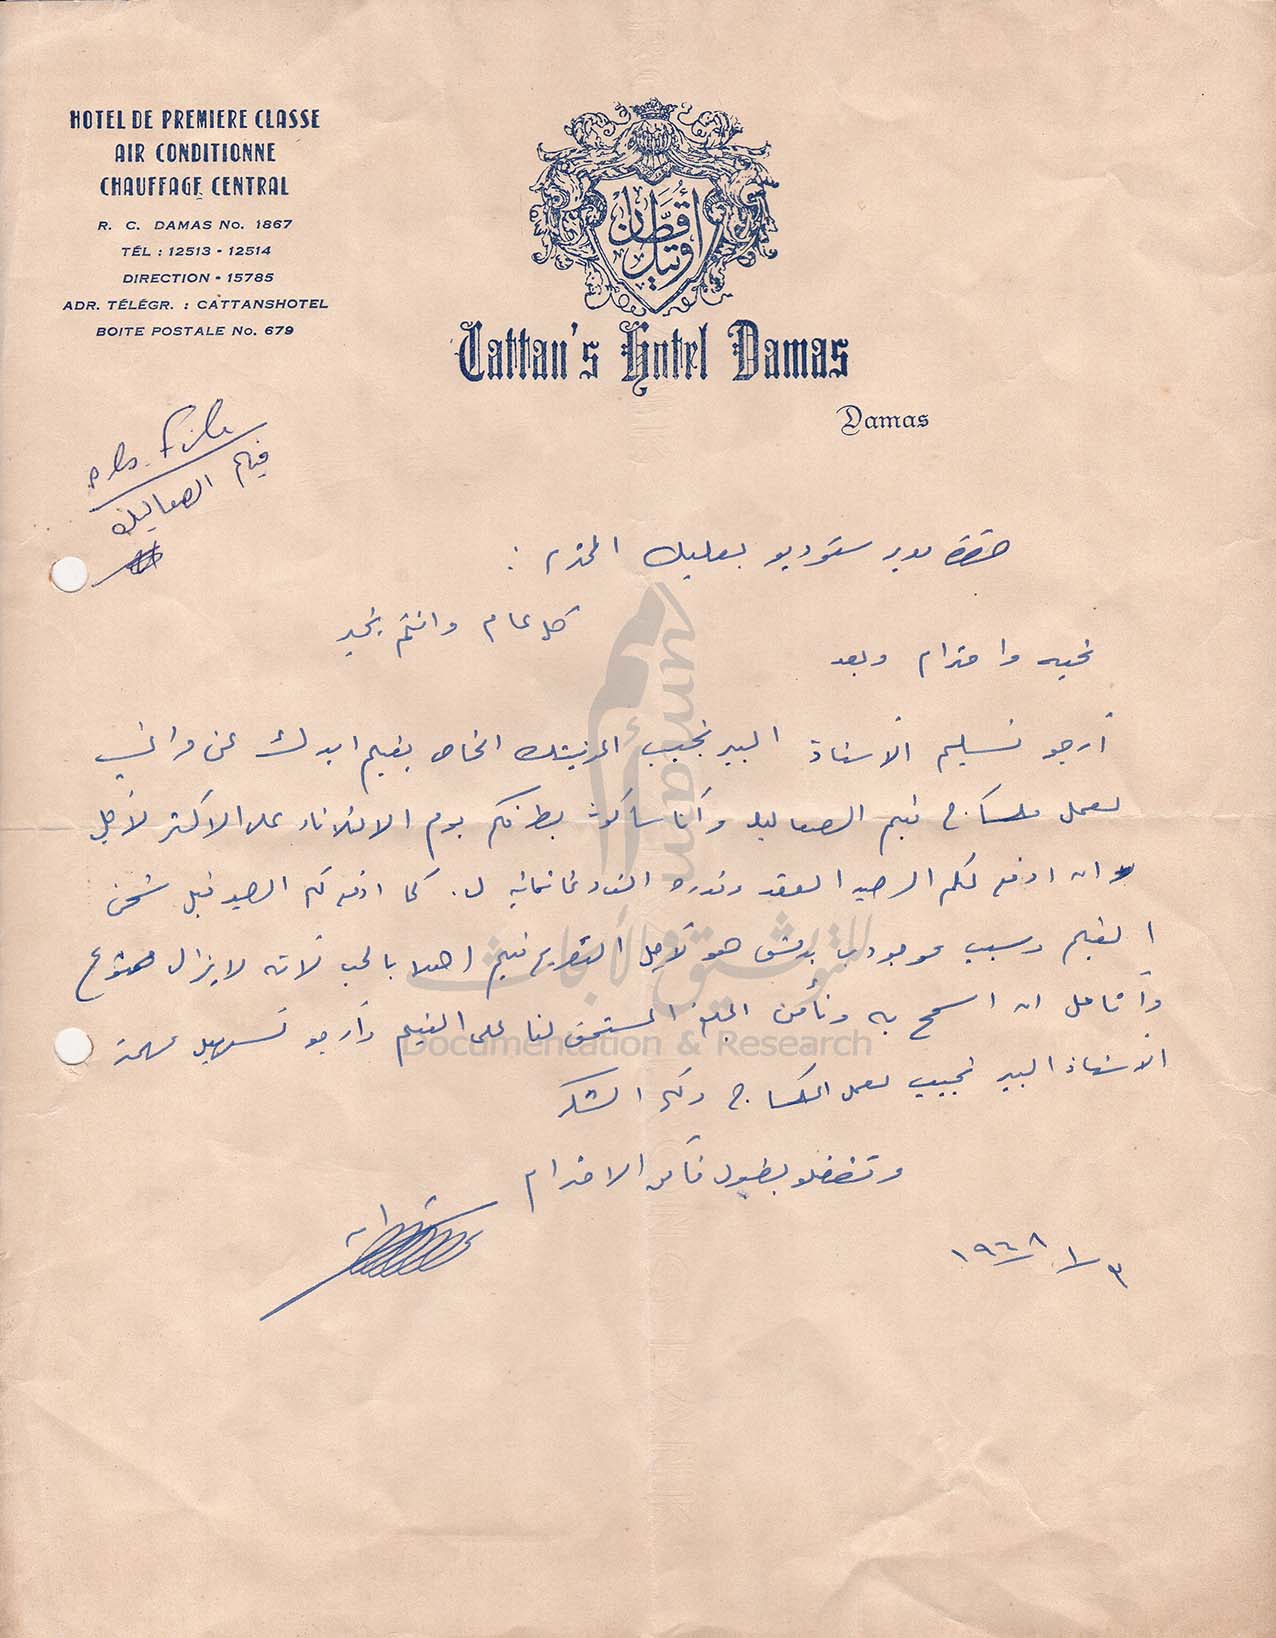 HOTEL DE PREMIERE CLASSE
AIR CONDITIONNE
CHAUFFAGE CENTRAL
R. C. DAMAS No. 1867
TÉL : 12513 - 12514
DIRECTION - 15785
ADR. TÉLÉGR. : CATTANSHOTEL
BOITE POSTALE No. 679
أوتيل قطان
Cattan's Hotel Damas
Damas
pls. file
فيلم الصعاليك
حضرة مدير ستوديو بعلبك المحترم :
كل عام وانتم بخير
تحيه واحترام وبعد
أرجو تسليم الأستاذ البير نجيب المرنيتك الخاص بفيلم ابدك عن مراتي
لعمل مكساج فيلم الصعاليك وأنا سأكون بطرفكم يوم الاثلاثاء على الاكثر لأجل
ان ادفع لكم الرصيد العقد وقدره الف وثمانمائه ل. كما ادفع لكم الرصيد قبل شحن
الفيلم وسبب وجودي بدمشق هو لأجل التصريح فيلم اهلا بالحب لأنه لا يزال ممنوع
وأتأمل ان اسمح به ونأمن المبلغ المستحق لنا على الفيلم وأرجو تسهيل مهمة
الأستاذ البير نجيب لعمل المكساج ولكم الشكر
وتفضلو بقبول فائق الاحترام
١٩٦٨/١/٣
للتوثيق والأبحاث
umam
Documentation & Research